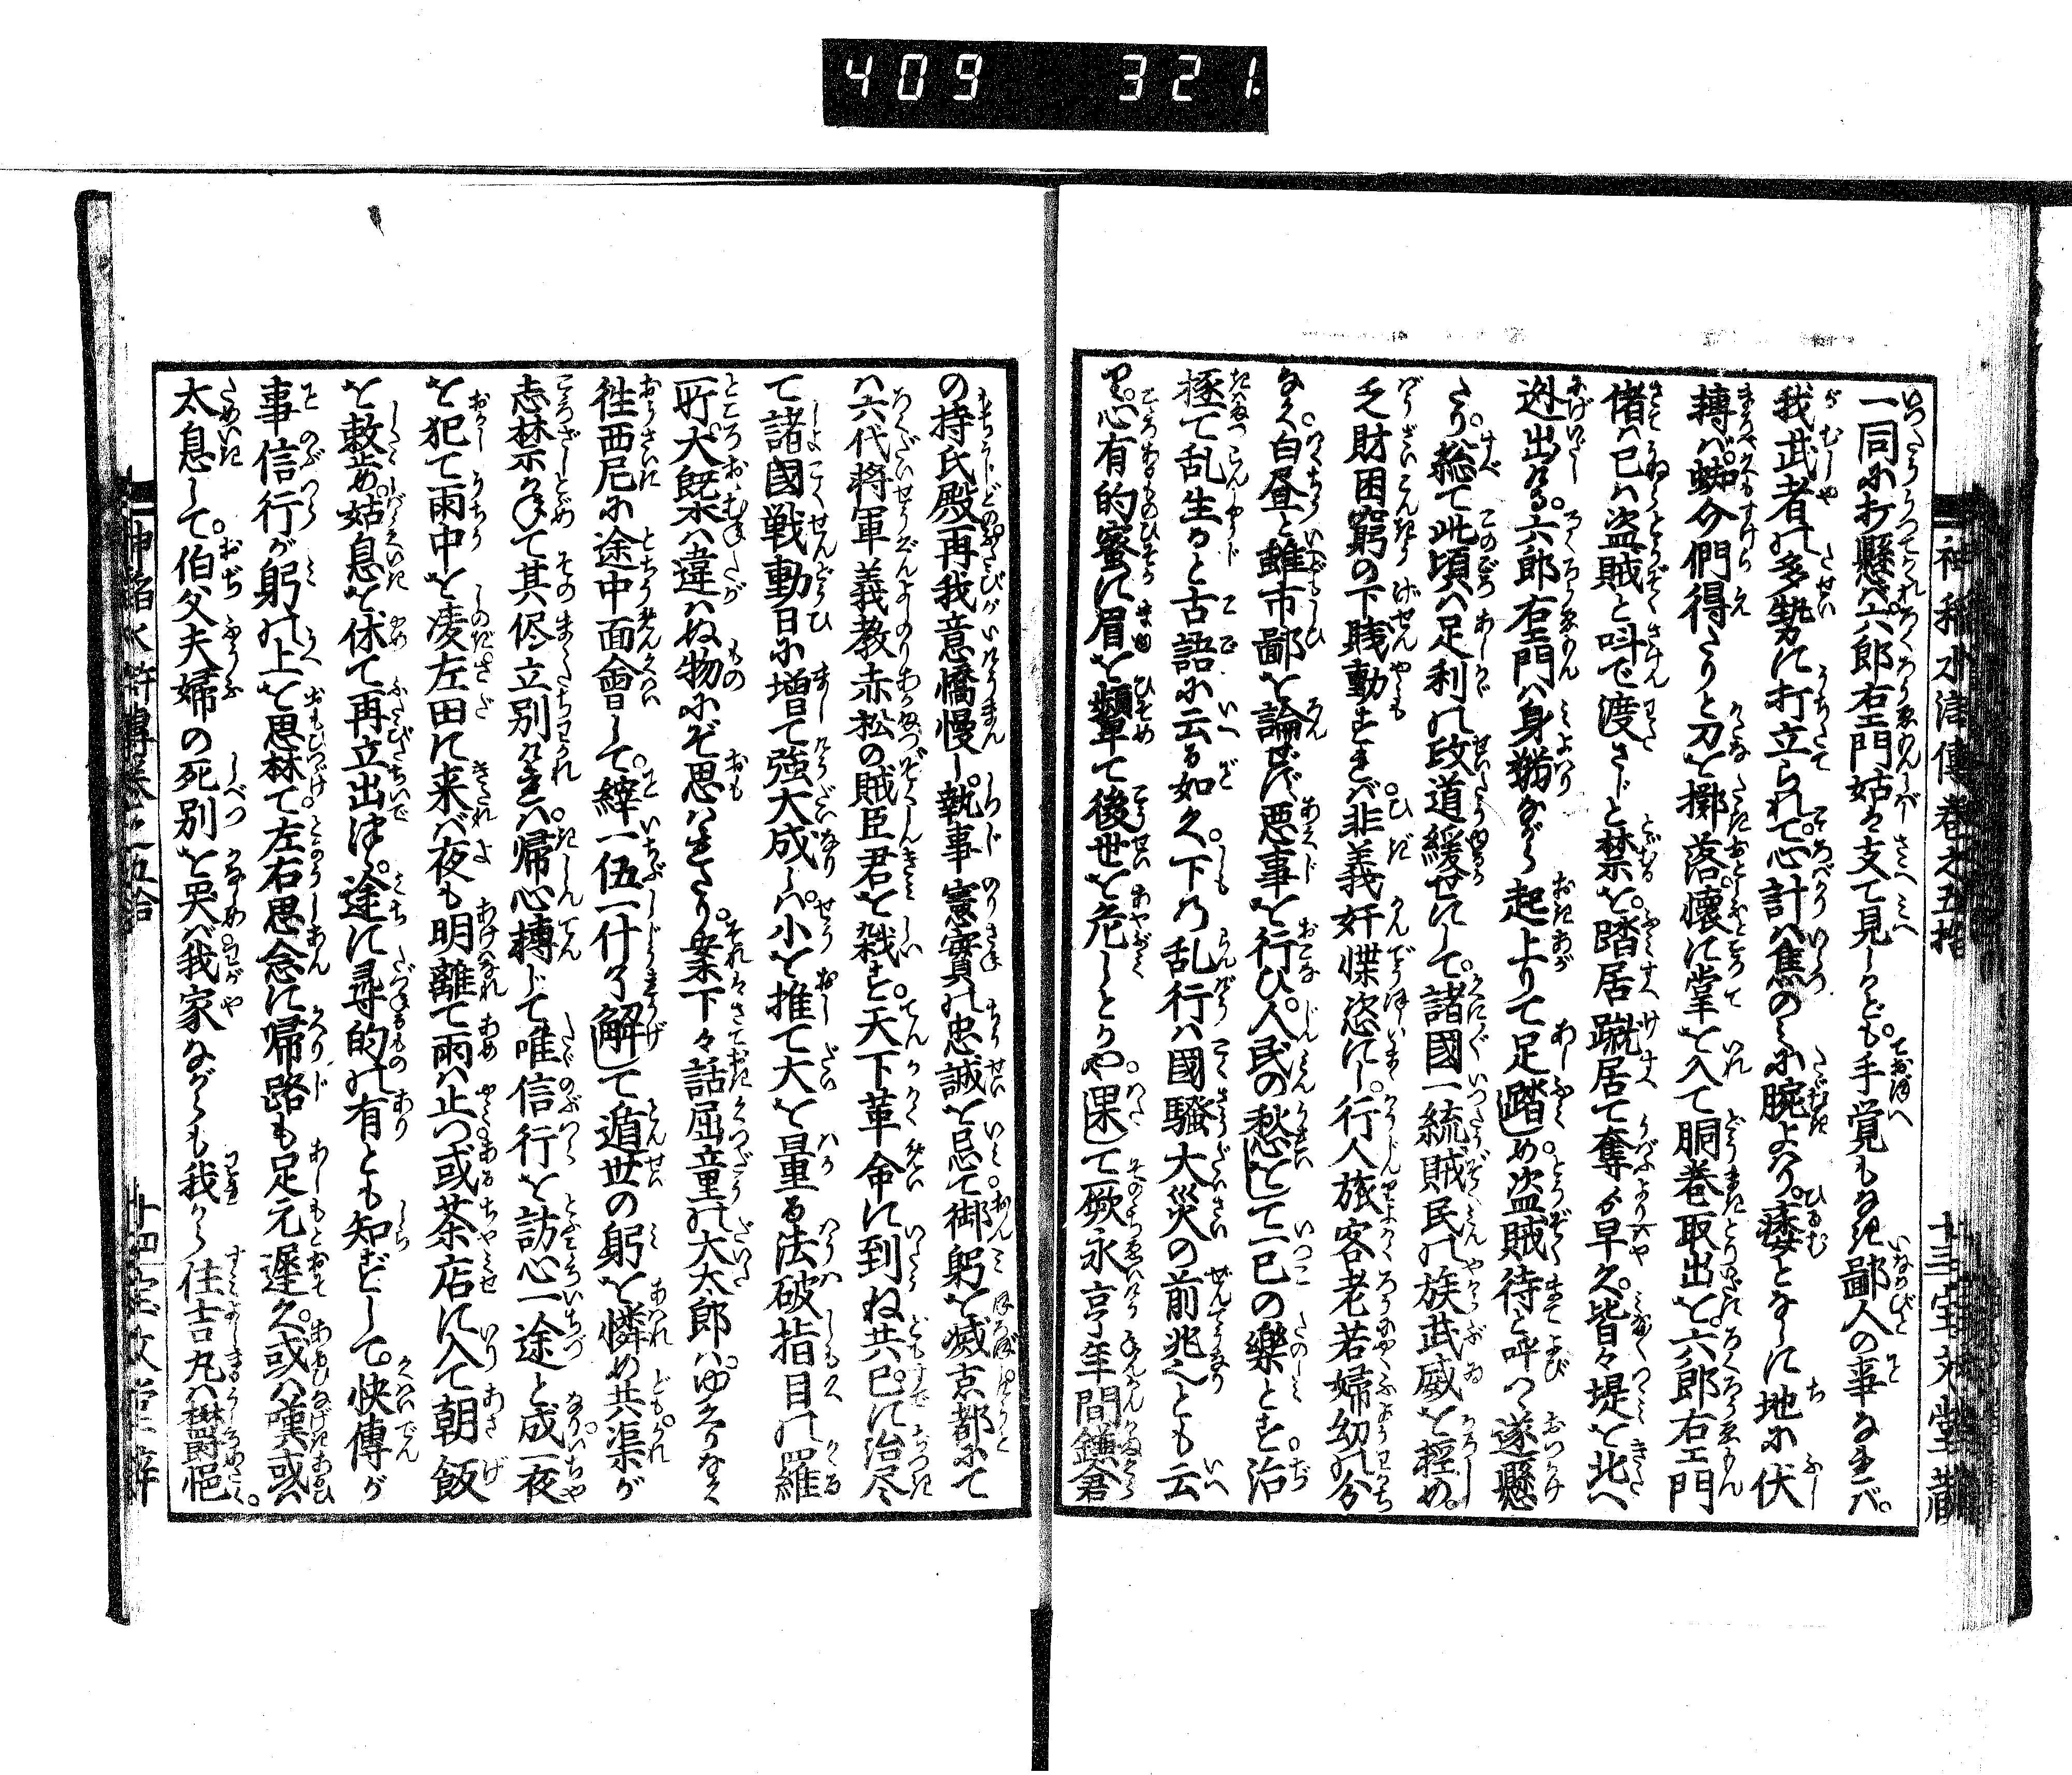 409 321
神稲水滸傳巻之五拾
十三宝文堂藏
一同に打懸バ六郎右エ門姑く支て見しかども手覚もなき鄙人の事なれバ
我武者の多勢に打立られて心計ハ焦のミに腕よハり痿となしに地に伏
轉バ蜘分們得たりと刀を擲落懐に掌を入て胴巻取出を六郎右エ門
偖ハ已ハ盗賊と叫で渡さじと禁を踏居蹴居て奪より早く皆々堤を北へ
迯出ける六郎右エ門ハ身弱ながら起上りて足踏しめ盗賊待と呼つゝ遂懸
たり総て此頃ハ足利の政道緩せにして諸國一統賊民の族武威を軽しめ
乏財困窮の下賎動もすれバ非義奸慄恣にし行人旅客老若婦幼の分
なく白昼と雖市鄙を論ぜず悪事を行ひ人民の愁を一己の樂とす治
極て乱生ると古語に云る如く下の乱行ハ國騒大災の前兆とも云
心有的蜜に眉を顰て後世を危しとかや果して厥永亨年間鎌倉
の持氏殿再我意憍慢し執事憲實の忠誠を忌て御躬を滅京都にて
ハ六代将軍義教赤松の賊臣君を弑す天下革命に到ね共已に治尽
て諸國戦動日に増て強大成ハ小を推て大を量る法破指目の羅
所大既ハ違ハぬ物にぞ思ハれたり案下々話屈童の大太郎ハゆくりなく
徃西尼に途中面會して縡一伍一什了解して遁世の躬を憐め共渠が
志禁かねて其侭立別けれハ帰心轉じて唯信行を訪心一途と成一夜
を犯て雨中を凌左田に来バ夜も明離て雨ハ止つ或茶店に入て朝飯
を敕め姑息を休て再立出つゝ途に尋的の有とも知ずして快傳が
事信行が躬の上を思禁て左右思念に帰路も足元遅く或ハ嘆或ハ
太息して伯父夫婦の死別を哭バ我家ながらも我から住吉丸ハ欝悒
神稲水滸傳巻之五拾
十四宝文堂梓